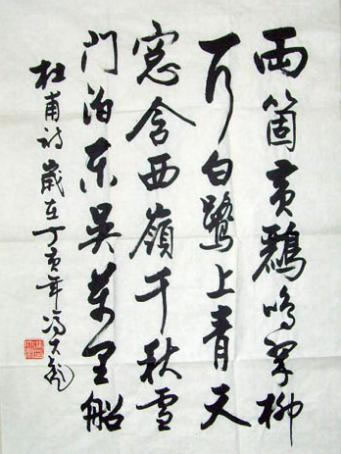 兩箇黄鸝鳴翠柳
一行白鷺上青天
窓含西嶺千秋雪
门泊东吴萬里船
杜甫诗 歲在丁亥年